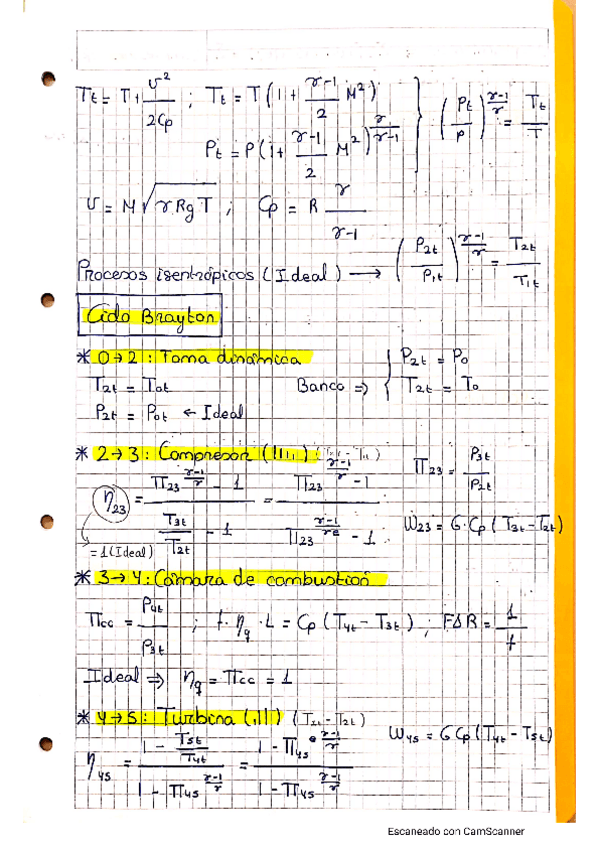 Tt = T + v²/2Cp ; Tt = T (1 + (γ-1)/2 M²) } (Pt/P)^((γ-1)/γ) = Tt/T
Pt = P (1 + (γ-1)/2 M²)^(γ/(γ-1))
v = M √(γ Rg T) ; Cp = R γ/(γ-1)
Procesos isentrópicos (Ideal) → (P2t/P1t)^((γ-1)/γ) = T2t/T1t
Ciclo Brayton
* 0→2 : Toma dinámica
T2t = T0t Banco ⇒ { P2t = P0
P2t = P0t ← Ideal T2t = T0
* 2→3 : Compresor
Π23 = P3t/P2t
η23 = (Π23^((γ-1)/γ) - 1)/(T3t/T2t - 1) = (Π23^((γ-1)/γ) - 1)/(Π23^((γ-1)/γe) - 1)
Ẇ23 = G·Cp (T3t - T2t)
= 1 (Ideal)
* 3→4 : Cámara de combustión
Πcc = P4t/P3t ; f·ηq·L = Cp (T4t - T3t) ; FAR = 1/f
Ideal ⇒ ηq = Πcc = 1
* 4→5 : Turbina
Ẇ45 = G Cp (T4t - T5t)
η45 = (1 - T5t/T4t)/(1 - Π45^((γ-1)/γ)) = (1 - Π45^(e (γ-1)/γ))/(1 - Π45^((γ-1)/γ))
Escaneado con CamScanner